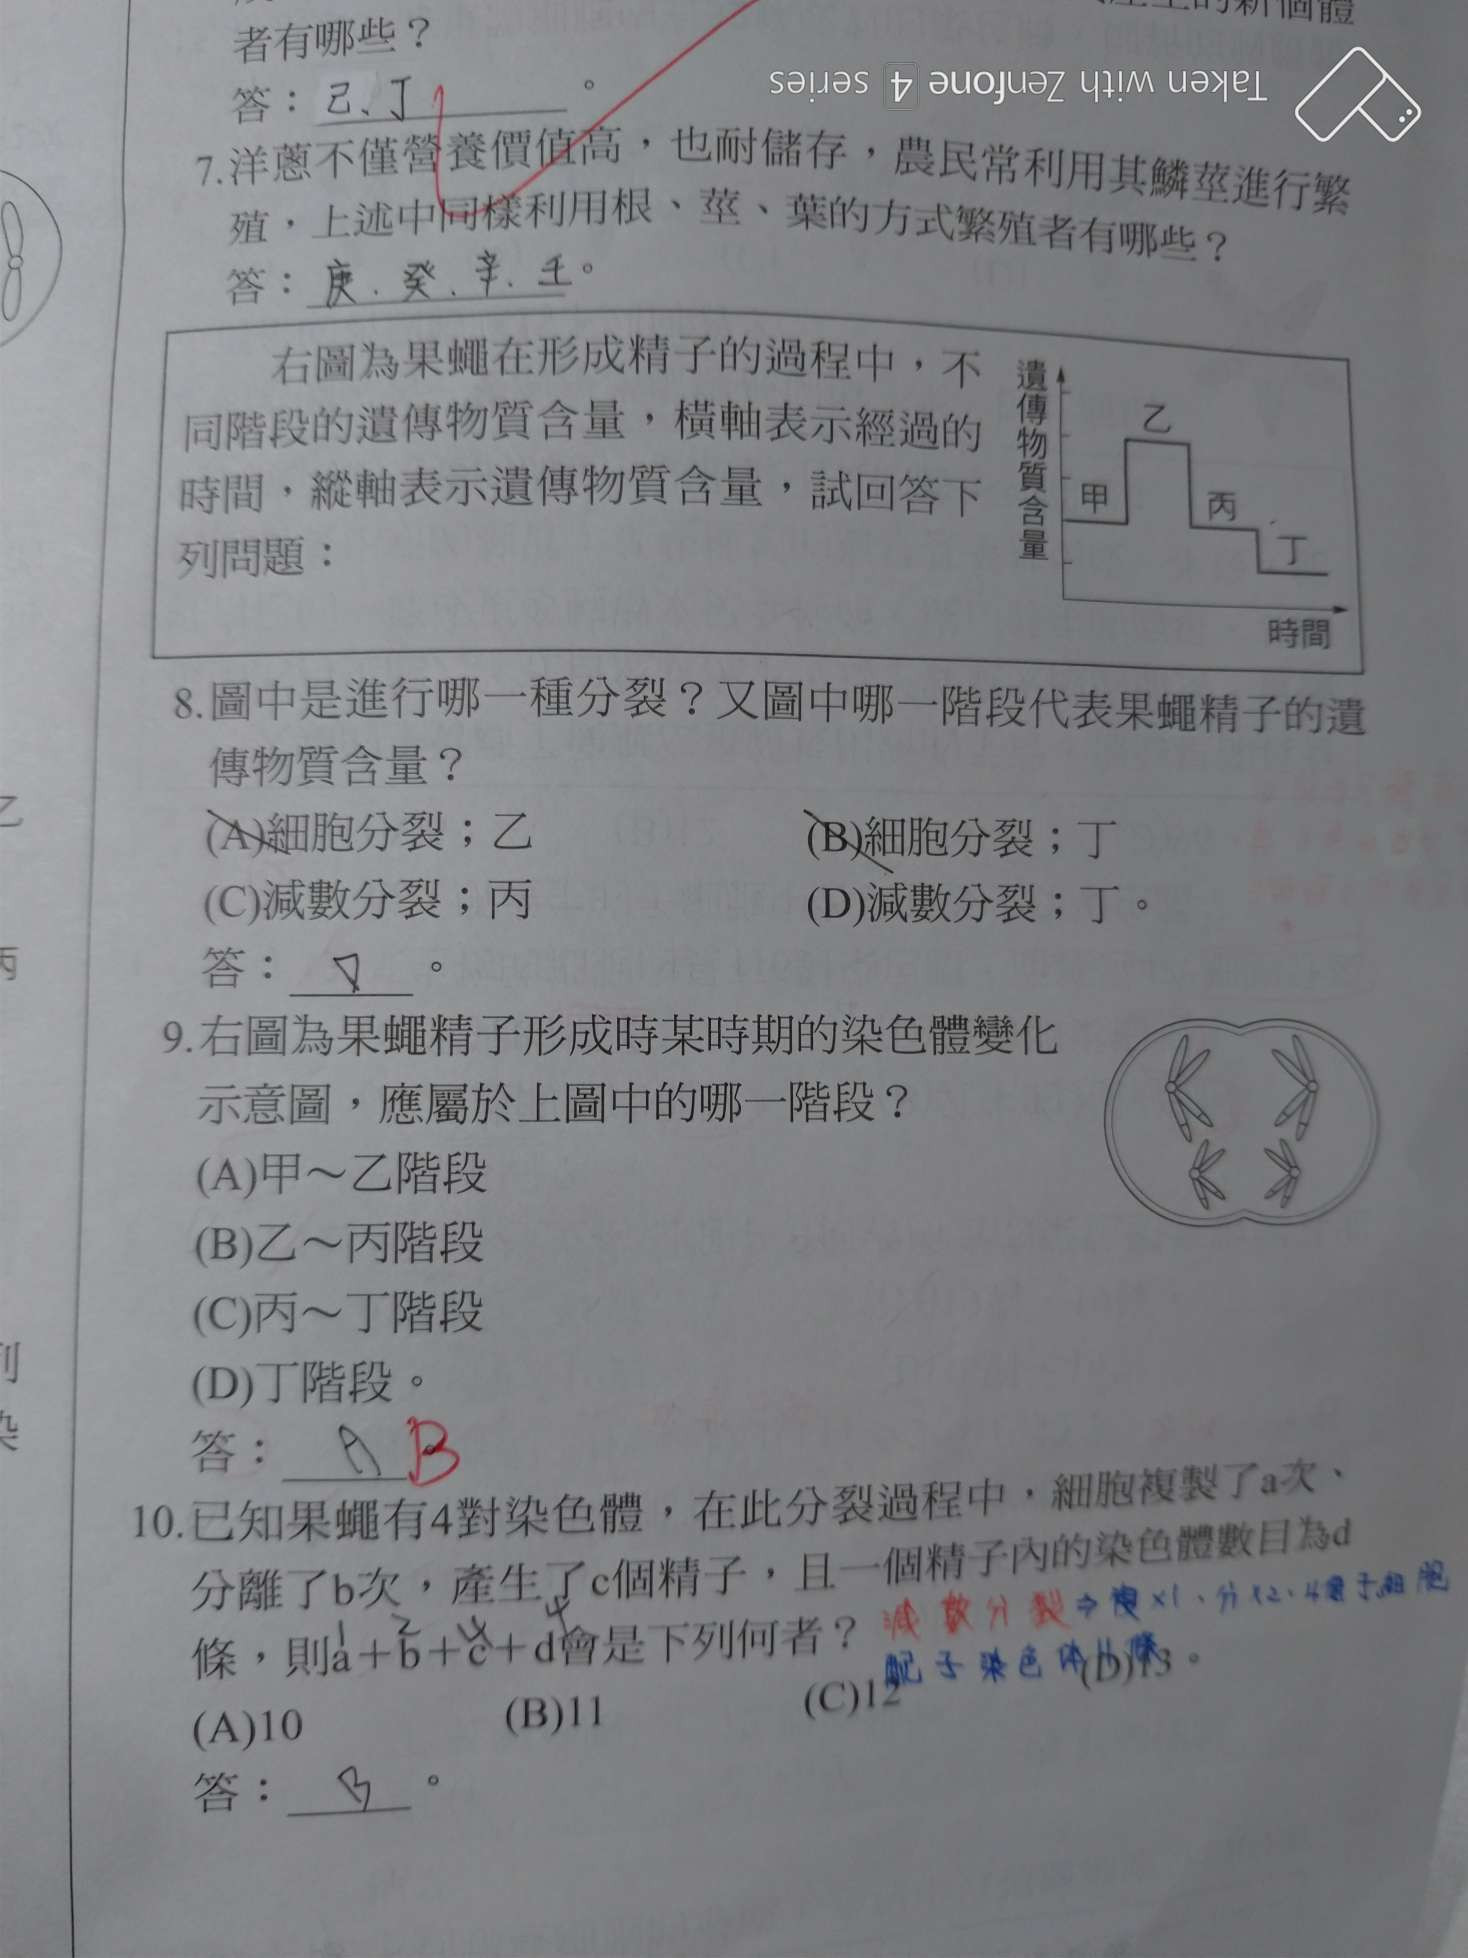 的新個體
者有哪些？
答：己、丁。
Taken with Zenfone 4 series
7.洋蔥不僅營養價值高，也耐儲存，農民常利用其鱗莖進行繁
殖，上述中同樣利用根、莖、葉的方式繁殖者有哪些？
答：庚.癸.辛.壬。
右圖為果蠅在形成精子的過程中，不
同階段的遺傳物質含量，橫軸表示經過的
時間，縱軸表示遺傳物質含量，試回答下
列問題：
遺傳物質含量
甲
乙
丙
丁
時間
8.圖中是進行哪一種分裂？又圖中哪一階段代表果蠅精子的遺
傳物質含量？
(A)細胞分裂；乙 (B)細胞分裂；丁
(C)減數分裂；丙 (D)減數分裂；丁。
答：D。
9.右圖為果蠅精子形成時某時期的染色體變化
示意圖，應屬於上圖中的哪一階段？
(A)甲～乙階段
(B)乙～丙階段
(C)丙～丁階段
(D)丁階段。
答：A B
10.已知果蠅有4對染色體，在此分裂過程中，細胞複製了a次、
分離了b次，產生了c個精子，且一個精子內的染色體數目為d
1 2 4 4
條，則a＋b＋c＋d會是下列何者？
減數分裂⇒複×1、分×2、4個子細胞
配子染色体4條
(A)10 (B)11 (C)12 (D)13。
答：B。
乙
丙
列
染